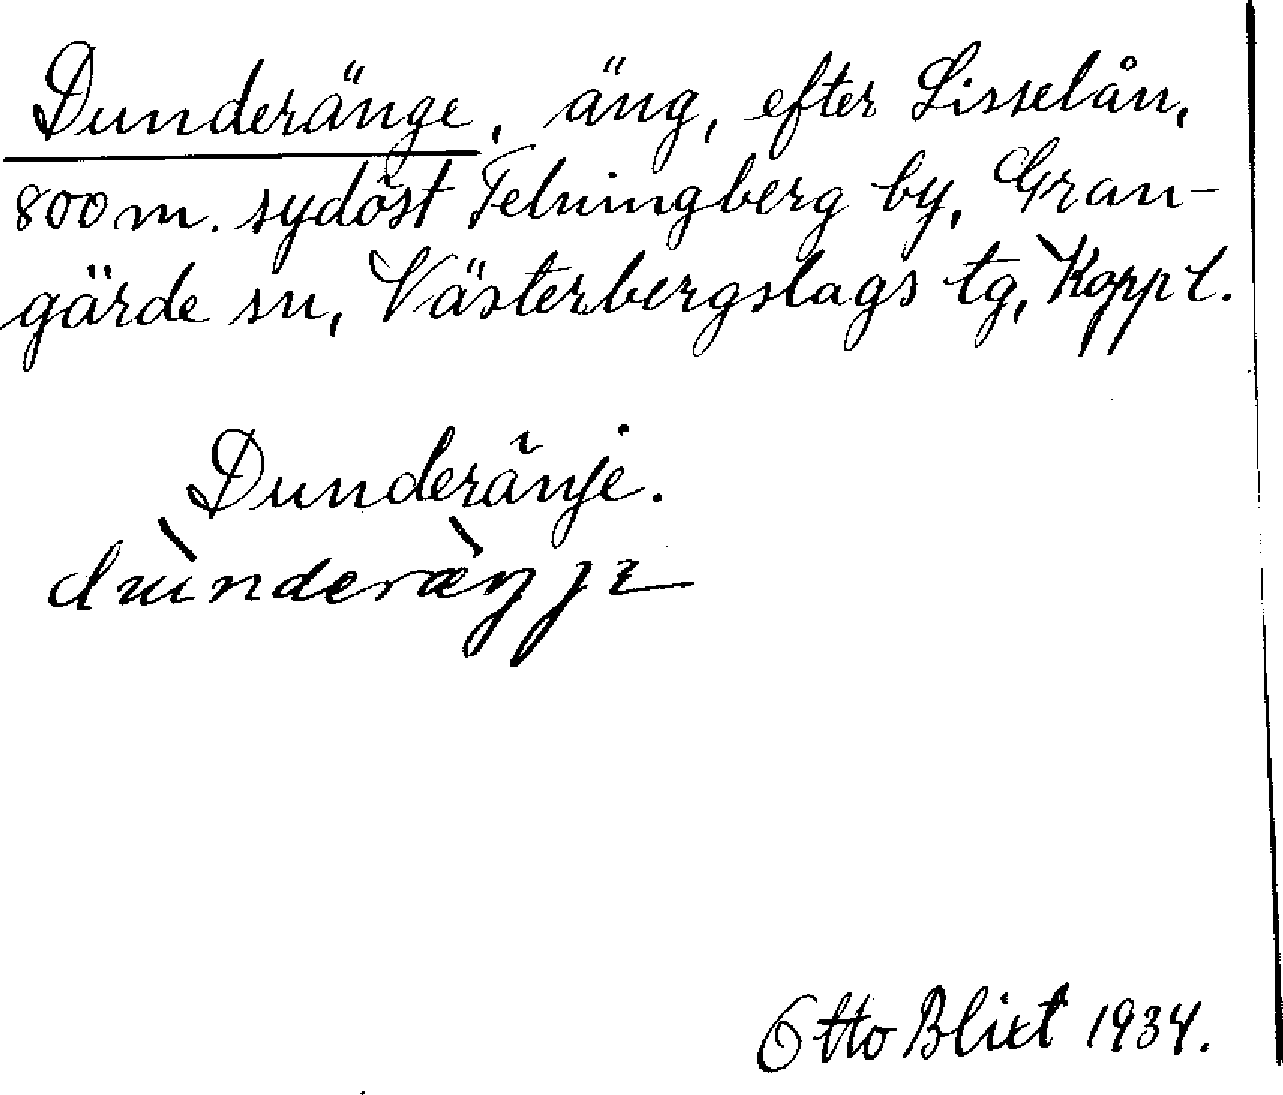 Dunderänge, äng, efter Lisselån,
800 m. sydöst Telningberg by, Gran-
gärde sn, Västerbergslags tg, Kopp l.
Dunderänje.
dùnderæ̀ŋjɛ
Otto Blixt 1934.